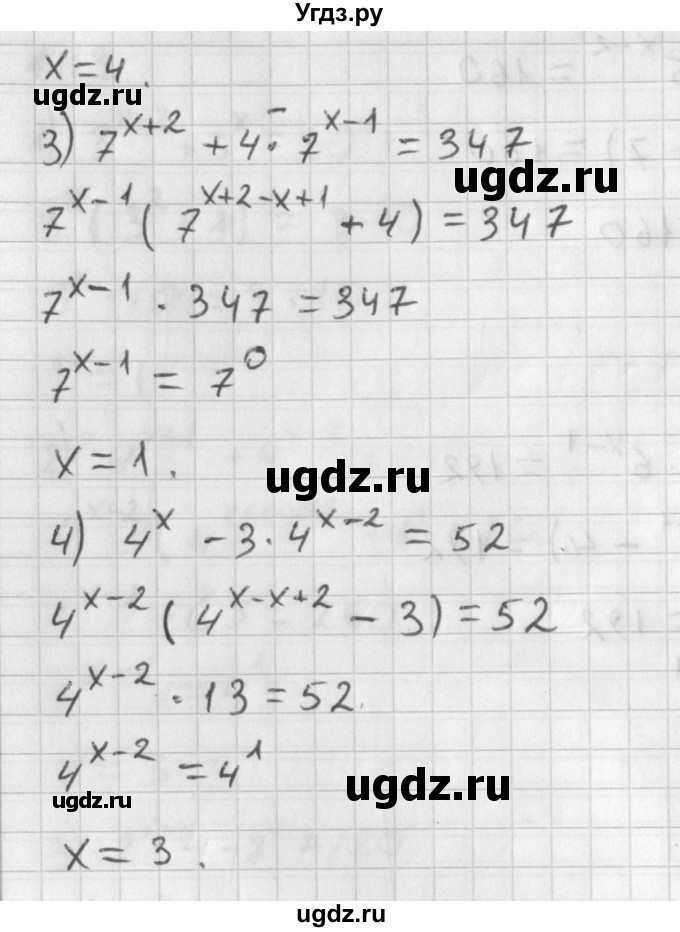 Угдз.ру
x = 4.
ugdz.ru
3) 7^{x+2} + 4 · 7^{x-1} = 347
ugdz.ru
7^{x-1} ( 7^{x+2-x+1} + 4) = 347
7^{x-1} · 347 = 347
7^{x-1} = 7^0
x = 1.
ugdz.ru
4) 4^x - 3 · 4^{x-2} = 52
4^{x-2} ( 4^{x-x+2} - 3) = 52
4^{x-2} · 13 = 52
4^{x-2} = 4^1
ugdz.ru
ugdz.ru
x = 3.
ugdz.ru